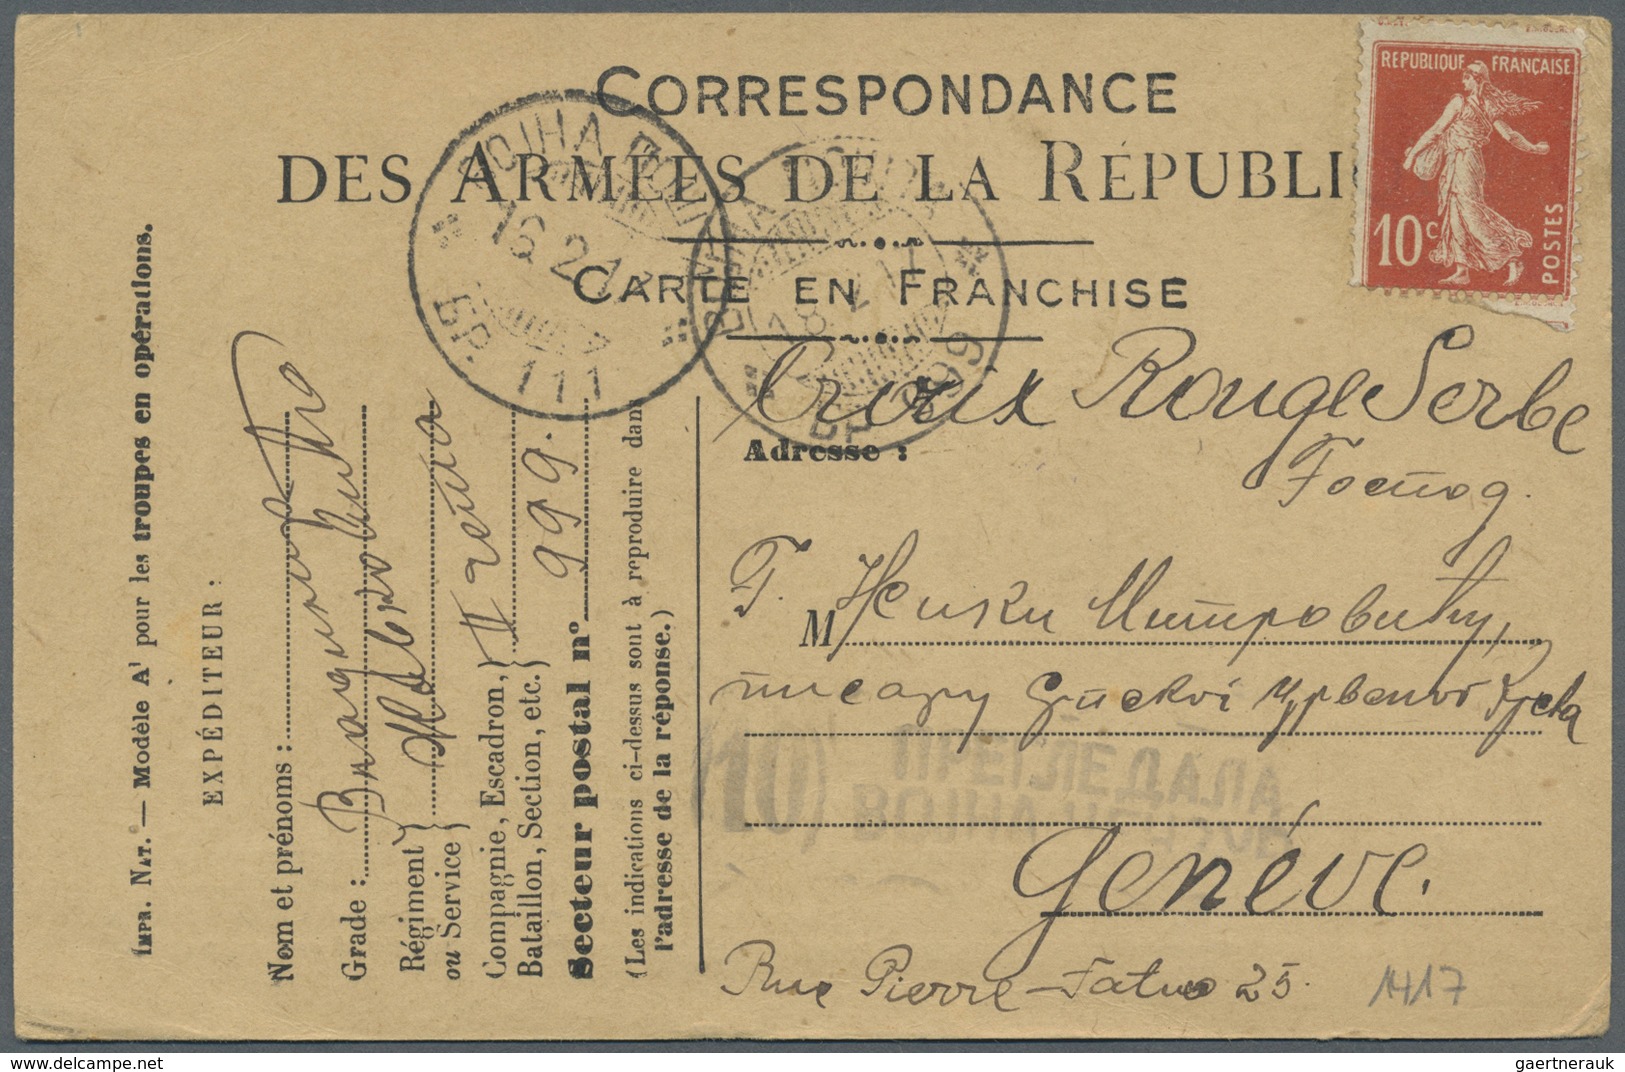 CORRESPONDANCE
DES ARMÉES DE LA RÉPUBLI
CARTE EN FRANCHISE
RÉPUBLIQUE FRANÇAISE
10c
POSTES
16. 2. 17
БР. 111
18
БР 999
Croix Rouge Serbe
Adresse :
Господ.
Г. Жики Митровићу,
M
писару Српског Црвеног Крста
(10) ПРЕГЛЕДАЛА
ВОЈНА
Genéve.
Rue Pierre-Fatio 25.
1417
IMPR. NAT. — Modèle A¹ pour les troupes en opérations.
EXPÉDITEUR :
Nom et prénoms :
Grade :
Régiment
ou Service
Compagnie, Escadron,
Bataillon, Section, etc.
II чета
Secteur postal n° 999.
(Les indications ci-dessus sont à reproduire dans
l'adresse de la réponse.)
gaertnerauk